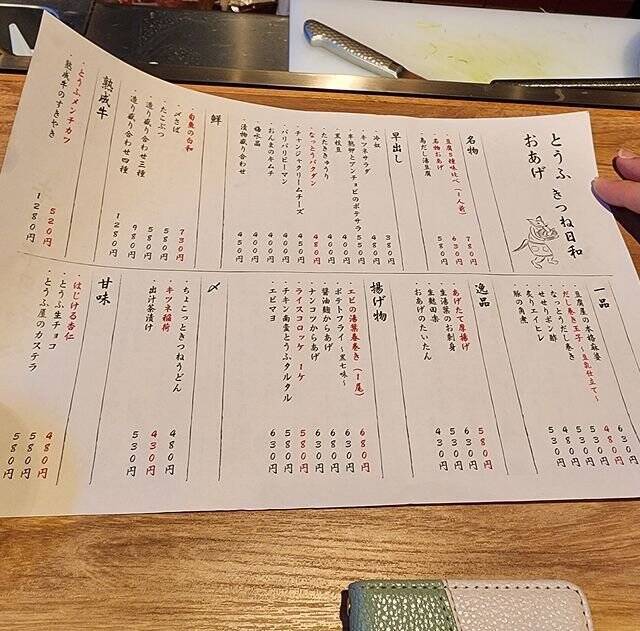 とうふきつね日和
おあげ
名物
・豆腐5種味比べ(1人前) 780円
・名物おあげ 630円
・鳥だし湯豆腐 580円
早出し
・冷奴 380円
・キツネサラダ 480円
・半熟卵とアンチョビのポテサラ 550円
・黒枝豆 400円
・たたききゅうり 400円
・なっとうバクダン 480円
・チャンジャクリームチーズ 450円
・パリパリピーマン 400円
・おんまのキムチ 400円
・梅水晶 400円
・漬物盛り合わせ 450円
鮮
・旬魚の白和 730円
・〆さば 580円
・たこぶつ 580円
・造り盛り合わせ三種 980円
・造り盛り合わせ四種 1280円
熟成牛
・とうふメンチカツ 520円
・熟成牛のすきやき 1280円
一品
・豆腐屋の本格麻婆 630円
・だし巻き玉子〜豆乳仕立て〜 480円
・なっとうだし巻き 530円
・せせりポン酢 530円
・炙りエイヒレ 480円
・豚の角煮 530円
逸品
・あげたて厚揚げ 580円
・生湯葉のお刺身 530円
・生麩田楽 530円
・おあげのたいたん 430円
揚げ物
・エビの湯葉春巻き(1尾) 680円
・ポテトフライ〜黒七味〜 630円
・醤油麹からあげ 680円
・ナンコツからあげ 630円
・ライスコロッケ 1ケ 580円
・チキン南蛮とうふタルタル 630円
・エビマヨ 630円
〆
・ちょこっときつねうどん 480円
・キツネ稲荷 430円
・出汁茶漬け 530円
甘味
・はじける杏仁 480円
・とうふ生チョコ 580円
・とうふ屋のカステラ 580円